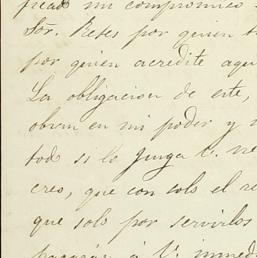 mi compromiso
Sor. Reses por quien
por quien acredite aqu
La obligacion de este,
obran en mi poder y
todo si lo juzga V. ne
creo, que con solo el re
que solo por servirlos
pagarán á V. inmedi